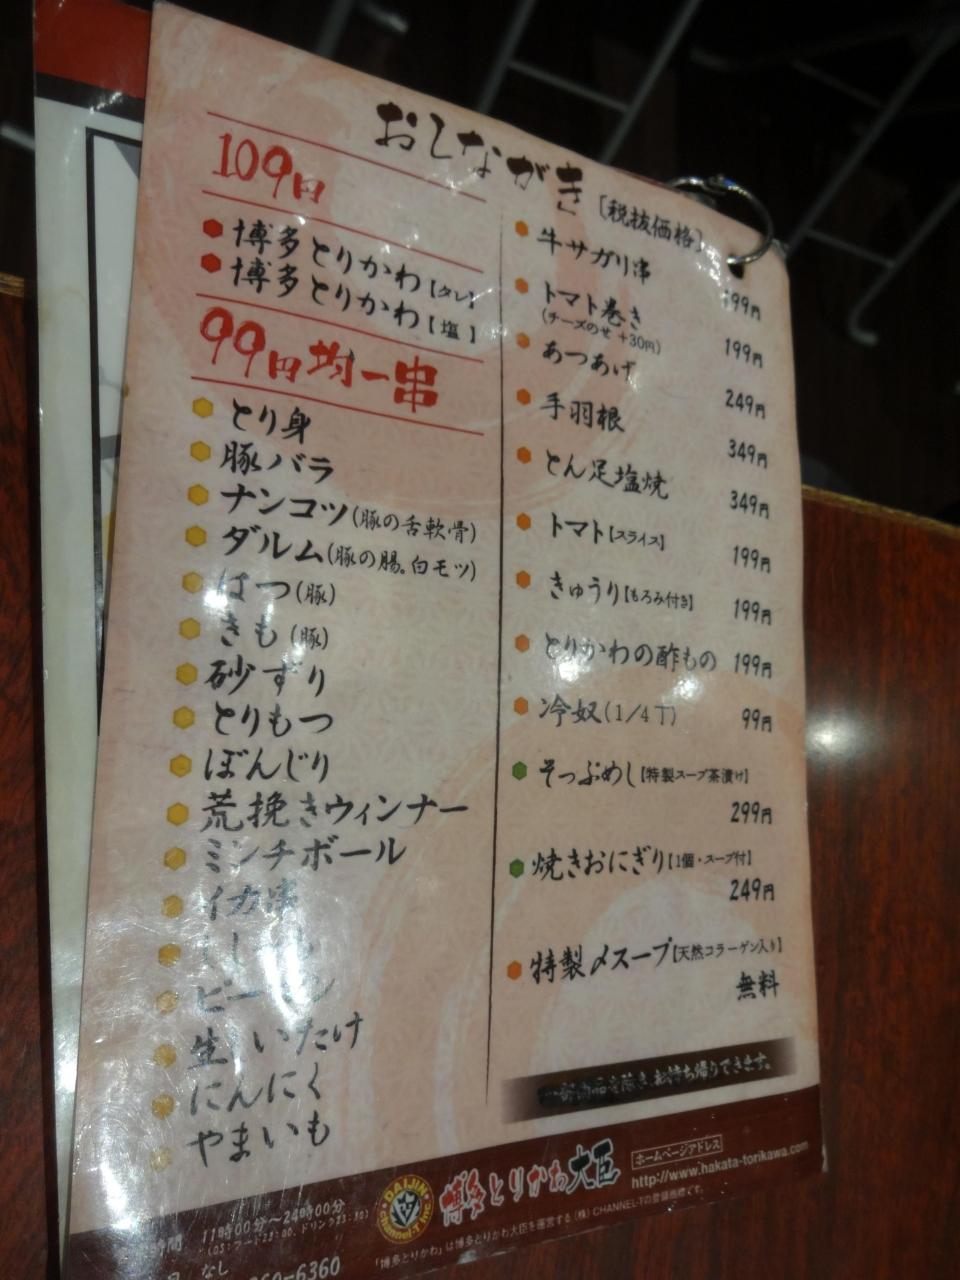 おしながき
[税抜価格]
109円
博多とりかわ【タレ】
博多とりかわ【塩】
99円均一串
とり身
豚バラ
ナンコツ(豚の舌軟骨)
ダルム(豚の腸。白モツ)
はつ(豚)
きも(豚)
砂ずり
とりもつ
ぼんじり
荒挽きウィンナー
ミンチボール
イカ串
ししとう
ピーマン
生しいたけ
にんにく
やまいも
牛サガリ串
199円
トマト巻き
(チーズのせ +30円)
199円
あつあげ
249円
手羽根
349円
とん足塩焼
349円
トマト【スライス】
199円
きゅうり【もろみ付き】
199円
とりかわの酢もの 199円
冷奴(1/4丁) 99円
そっぷめし【特製スープ茶漬け】
299円
焼きおにぎり【1個・スープ付】
249円
特製〆スープ【天然コラーゲン入り】
無料
一部商品を除き、お持ち帰りできます。
DAIJIN
Channel-T Inc.
博多とりかわ大臣
ホームページアドレス
http://www.hakata-torikawa.com
「博多とりかわ」は博多とりかわ大臣を運営する(株)CHANNEL-Tの登録商標です。
時間 11時00分〜24時00分
(OS:フード23:00、ドリンク23:30)
なし
-6360